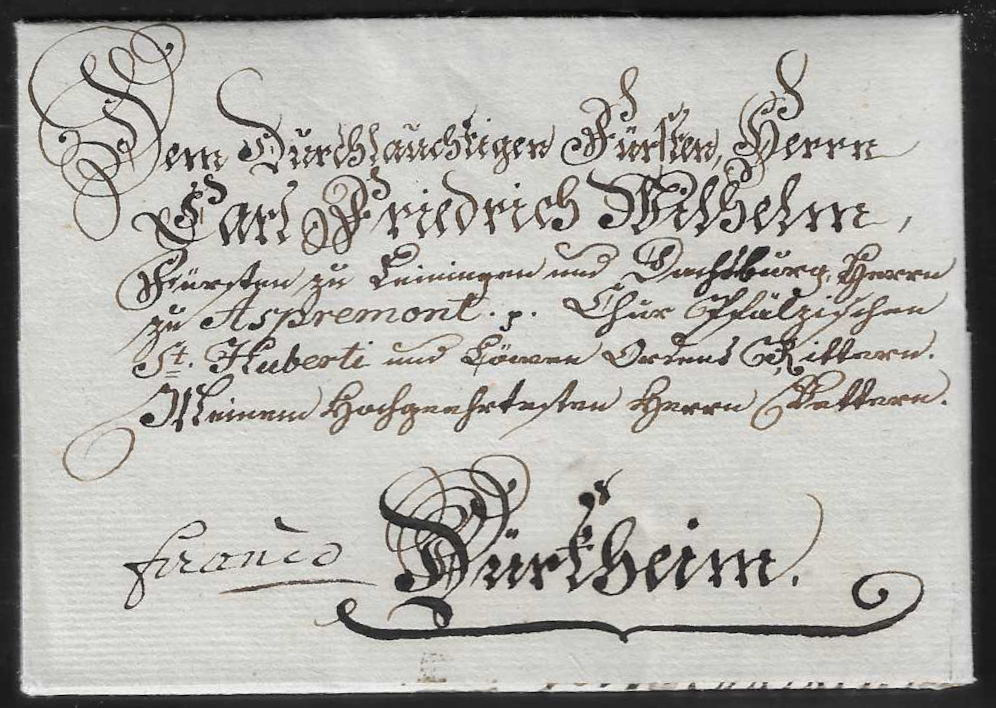 Dem Durchlauchtigen Fürsten, Herrn
Carl Friedrich Wilhelm,
Fürsten zu Leiningen und Dachsburg, Herrn
zu Aspremont. p. Chur Pfälzischen
St. Huberti und Löwen Ordens Rittern.
Meinem Hochgeehrtesten Herrn Vettern.
franco Dürkheim.